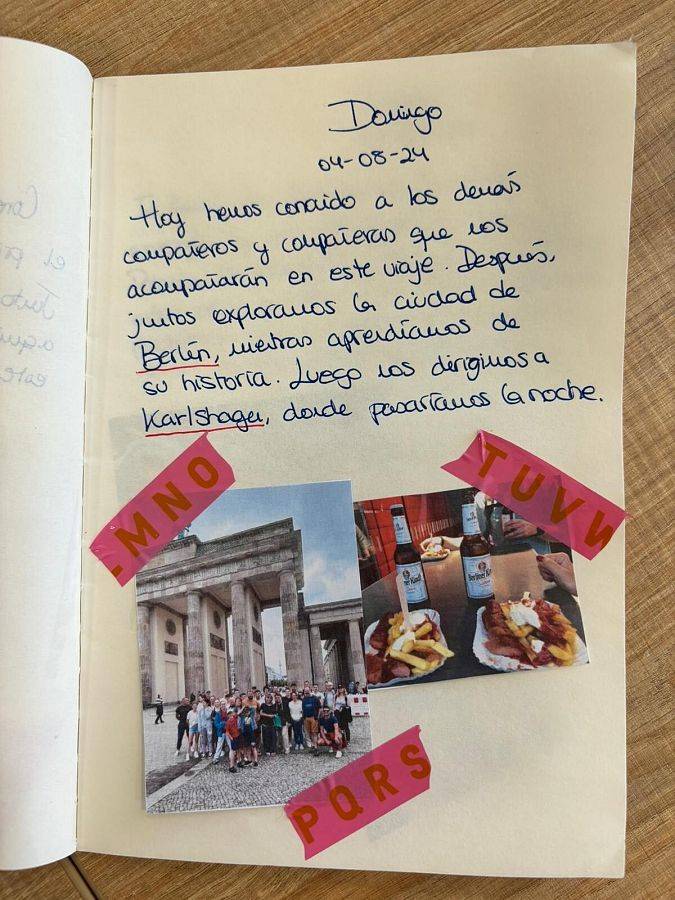 Domingo
04-08-24
Hoy hemos conocido a los demás
compañeros y compañeras que nos
acompañarán en este viaje. Después,
juntos exploramos la ciudad de
Berlín, mientras aprendíamos de
su historia. Luego nos dirigimos a
Karlshagen, donde pasaríamos la noche.
LMNO
TUVW
Berliner Kindl
PQRS